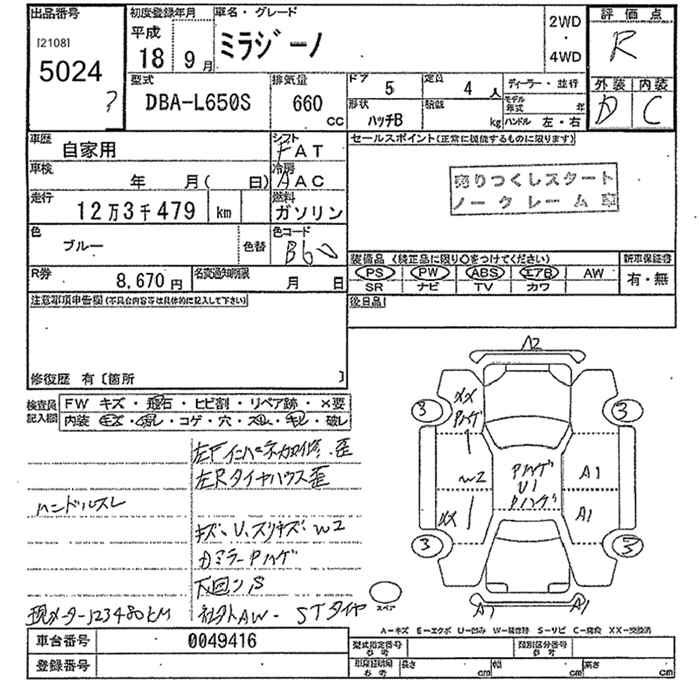 出品番号
[2108]
5024
?
初度登録年月
平成
18 9月
車名・グレード
ミラジーノ
2WD
・
4WD
評価点
R
外装 内装
D C
型式
DBA-L650S
排気量
660
cc
ドア
5
定員
4 人
形状
ハッチB
積載
kg
ディーラー・並行
モデル年式 年
ハンドル 左・右
車歴
自家用
シフト
FAT
車検
年 月( 日)
冷房
AAC
走行
12万3千479 km
燃料
ガソリン
色
ブルー
色替
色コード
B60
R券
8,670円
名変通知期限
月 日
セールスポイント(正常に機能するものに限ります)
売りつくしスタート
ノークレーム車
装備品 (純正品に限り○をつけてください)
PS PW ABS エアB AW
SR ナビ TV カワ
新車保証書
有・無
後日品
注意事項申告欄(不具合内容等は具体的に記入して下さい)
修復歴 有〔箇所 〕
検査員記入欄
FW キズ・飛石・ヒビ割・リペア跡・×要
内装 ・コゲ・穴・スレ・キレ・破レ
左Fインパネ 歪
左Rタイヤハウス歪
ハンドルスレ
キズ、U、スリキズ、W2
ミラーPハゲ
下回りS
現メーター123480KM
社外AW・STタイヤ
A2
3
3
3
3
XX
Pハゲ
W2
XX
Pハゲ
U1
Pハゲ
A1
A1
A1
スペア
A−キズ E−エクボ U−凹み W−補修跡 S−サビ C−腐食 XX−交換済
車台番号
0049416
登録番号
型式指定番号
参考
類別区分番号
参考
車庫証明用
参考
長さ cm
幅 cm
高さ cm